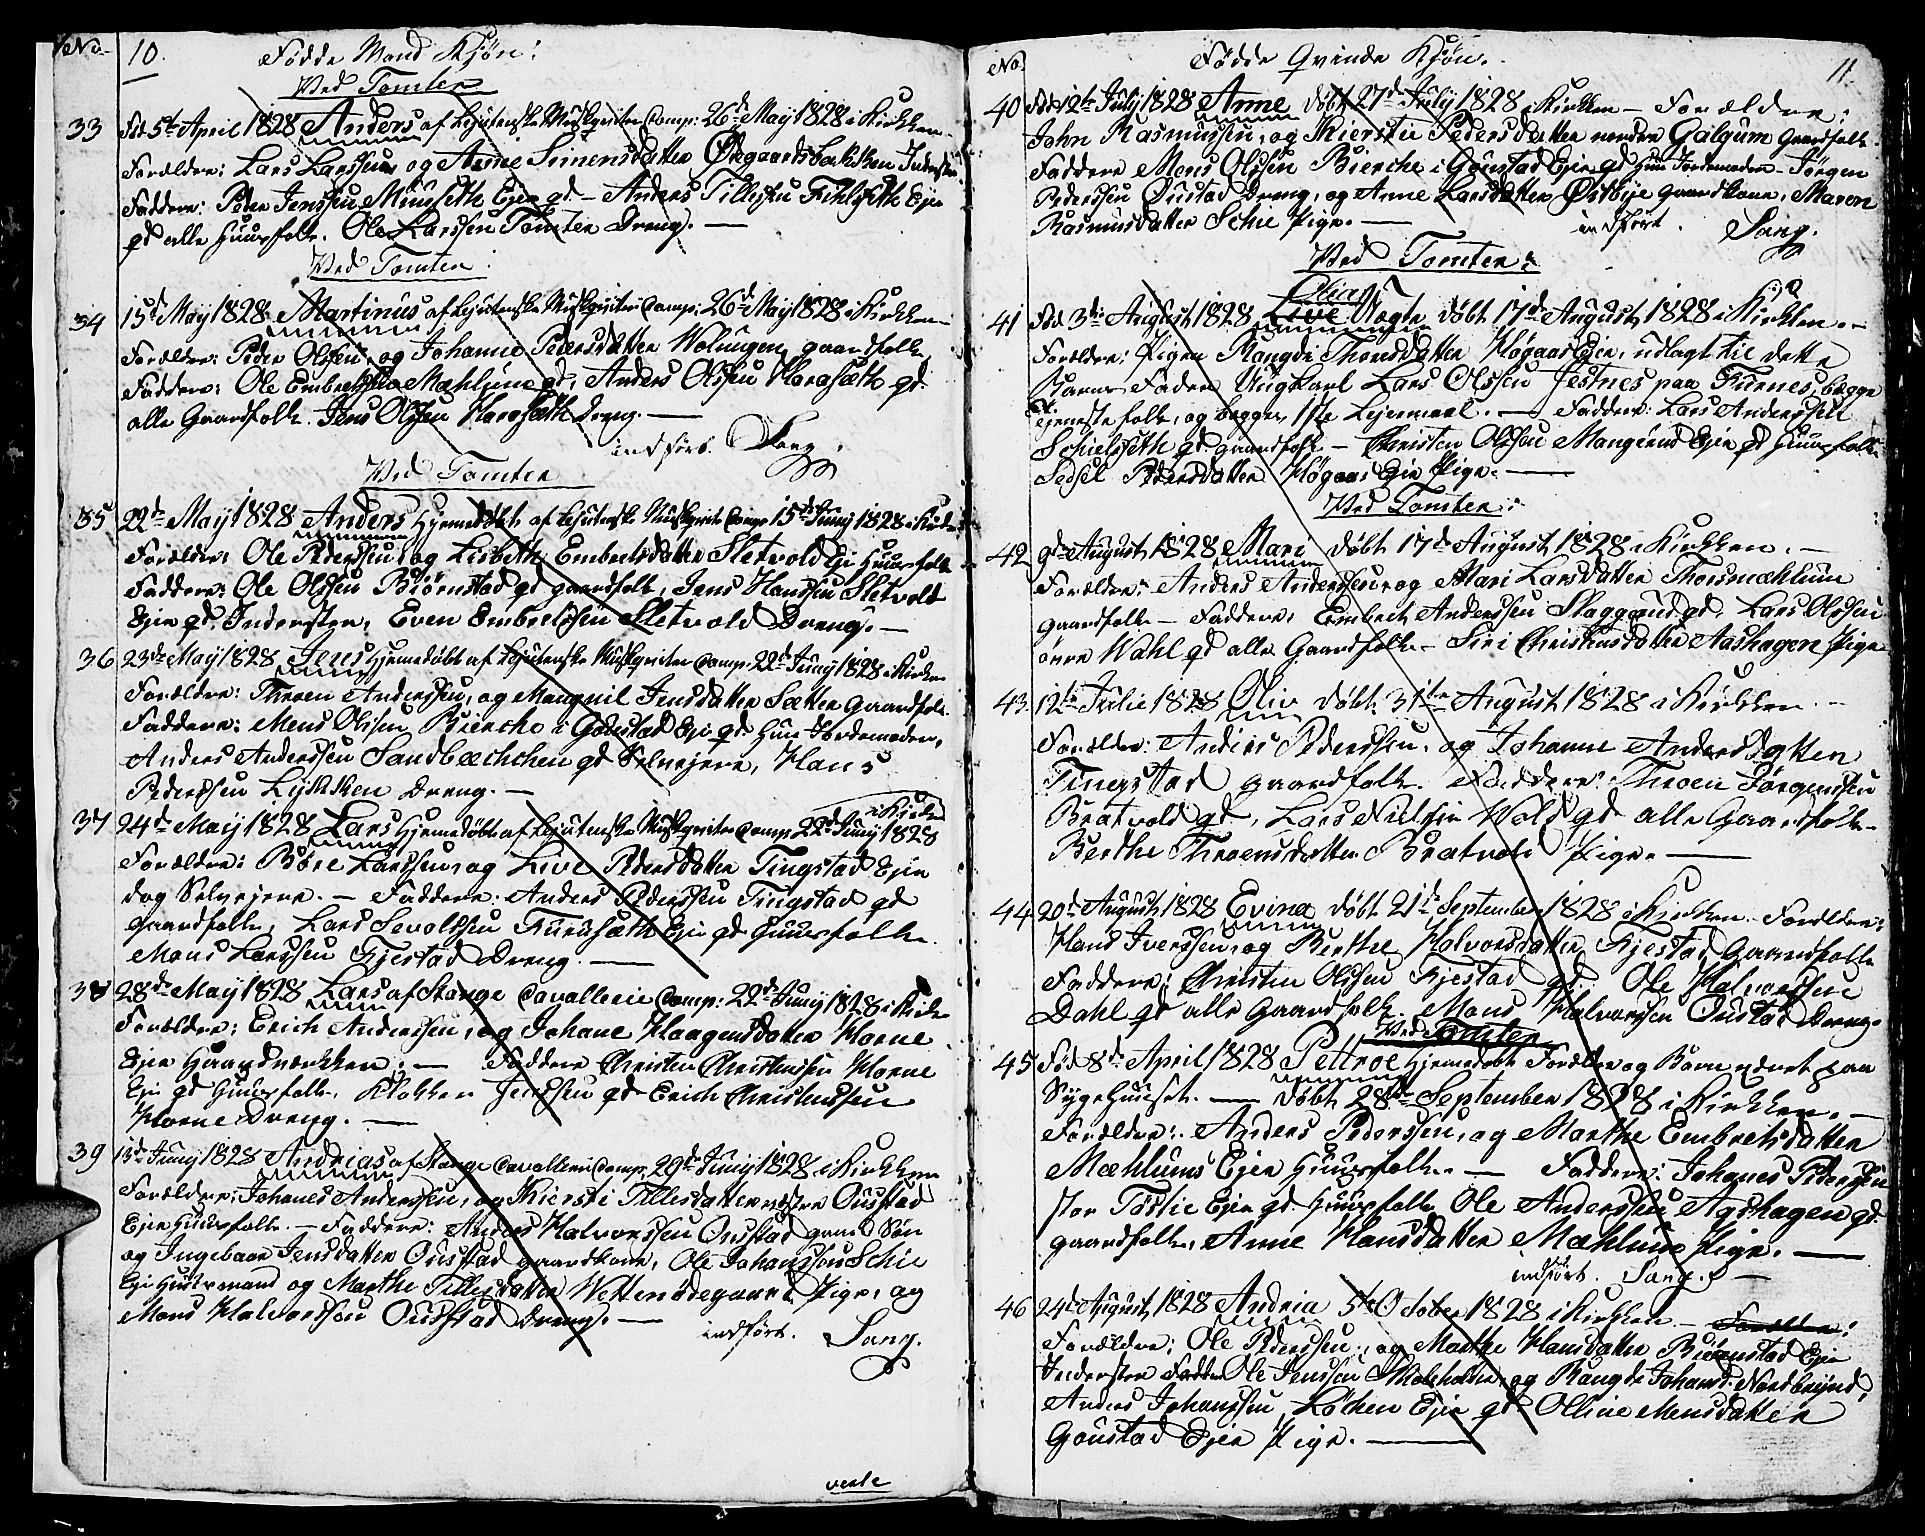 No. 10. Fødde Mand Kjøn:
Ved Tomter
33 Fød 5te April 1828 Anders af Lejutenske Musqviter Comp: 26de May 1828 i Kirken
Forældre: Lars Larssen og Anne Simensdatter Ødegaardsbækken Inderster
Faddere: Peder Jenssen Eje gd. – Anders Tillessen Eje
gd alle Huusfolk. Ole Larssen Tomter Dreng. —
Ved Tomter.
34 15de May 1828 Martinus af Lejutenske Musqviter Comp: 26de May 1828 i Kirken
Forældre: Peder Olssen, og Johanne Pedersdatter gaardfolk
Faddere: Ole Embretssen Mæhlum gd, Anders Olssen Harasæth gd.
alle Gaardfolk. Jens Olssen Harasæth Dreng. —
indført. Sang.
Ved Tomter
35 22de May 1828 Anders Hjemedøbt af Lejutenske Musqviter Comp 15de Juny 1828 i Kirken
Forældre: Ole Pederssen og Lisbeth Embretsdatter Sletvold Eje Huusfolk
Faddere: Ole Olssen Biørnstad gd gaardfolk, Jens Hanssen Sletvold
Eje gd. Inderster, Even Embretssen Sletvold Dreng. —
36 23de May 1828 Jens Hjemedøbt af Lejutenske Musqviter Comp: 22de Juny 1828 i Kirken
Forældre: Throen Anderssen, og Mangnil Jensdatter Sætter Gaardfolk.
Faddere: Mons Olssen Bierche i Gaustad Eje gd. Hun Jordemoder,
Anders Anderssen Sandbæchchen gd Selvejere, Hans
Pederssen Lykken Dreng. —
i Kirken
37 24de May 1828 Lars Hjemedøbt af Lejutenske Musqviter Comp: 22de Juny 1828
Forældre: Børe Larssen og Live Pedersdatter Tingstad Eje
dog Selvejere. – Faddere: Anders Pederssen Tingstad gd
gaardfolk, Lars Sevoldsen Furusæth Eje gd Huusfolk.
Mons Larssen Fjestad Dreng. —
38 28de May 1828 Lars af Stange Cavallerie Comp: 22de Juny 1828 i Kirken
Forældre: Erich Anderssen, og Johane Haagensdatter Horne
Eje Haandværker. — Faddere Christen Christenssen Horne
Eje gd Huusfolk, Klokker Jenssen gd Erich Christenssen
Horne Dreng. —
39 13de Juny 1828 Andrias af Stange Cavallerie Comp. 29de Juny 1828 i Kirken
Forældre: Johanes Anderssen, og Kiersti Tillesdatter Oustad
Eje Huusfolk. – Faddere: Anders Halvorssen Oustad gaard Søn
og Ingebaar Jensdatter Oustad gaardkone, Ole Johanssen Schie
Eje Huusmand og Marthe Tillesdatter Pige, og
Mons Halvorssen Oustad Dreng. —
indført. Sang.
vende
No. Fødde Qvinde Kjøn. 11.
40 Fød 12te July 1828 Anne døbt 27de July 1828 i Kirken – Forældre:
John Rasmussen, og Kiersti Pedersdatter nordre Galgum Gaardfolk.
Faddere Mons Olssen Bierche i Gaustad Eje gd Hun Jordemoder – Jørgen
Pederssen Oustad Dreng, og Anne Larsdatter Østbye gaardkone, Maren
Rasmusdatter Schie Pige. —
indført. Sang.
Ved Tomter:
Olia
41 Fød 3de August 1828 Live Uægte døbt 17de August 1828 i Kirken. –
Forældre: Pigen Rangdi Thorsdatter Høgaas Eje, udlagt til dette
Barns Fader Ungkarl Lars Olssen Jestnes paa Furnes, begge
tjeneste folk, og begges 1ste Lejermaal. — Faddere: Lars Anderssen
gd gaardfolk – Christen Olssen Eje gd Huusfolk
Sedsel Pedersdatter Høgaas Eje Pige. —
Ved Tomter:
42 9de August 1828 Mari døbt 17de August 1828 i Kirken. –
Forældre: Anders Anderssen og Mari Larsdatter Thorsmæhlum
gaardfolk – Faddere: Embrech Anderssen Skaggrud gd. Lars Olssen
øvre Wahl gd alle Gaardfolk – Siri Christensdatter Aashagen Pige
43 12te Julie 1828 Oliv døbt 31te August 1828 i Kirken. –
Forældre: Anders Pederssen, og Johanne Andersdatter
Tingstad gaardfolk. Faddere: Throen Jørgenssen
Bratvold gd, Lars Nielssen Wold gd alle Gaardfolk –
Berthe Throensdatter Bratvold Pige. —
44 20de August 1828 Evina døbt 21de September 1828 i Kirken. Forældre:
Hans Iverssen, og Berthe Halvorsdatter Fjestad Gaardfolk
Faddere: Christen Olssen Fjestad gd. Ole Halvorssen
Dahl gd alle Gaardfolk. Mons Halvorssen Oustad Dreng.
Ved Tomter
45 Fød 8de April 1828 Pettroe Hjemedøbt Forældre og Barn været paa
Sygehuuset. — døbt 28de September 1828 i Kirken. –
Forældre: Anders Pederssen, og Marthe Embretsdatter
Mæhlums Eje Huusfolk. — Faddere: Johanes Pederssen
stor Tøslie Eje gd. Huusfolk Ole Anderssen Aashagen gd.
gaardfolk, Anne Hansdatter Mæhlum Pige. —
indført. Sang. –
46 24de August 1828 Andria 5te October 1828 i Kirken – Forældre:
Forældre: Ole Pederssen, og Marthe Hansdatter Biørnstad Eje
Inderster Faddere Ole Jenssen og Rangdi Johansd: Nordbrynd,
Anders Johanssen Løken Eje gd. Olline Monsdatter
Gaustad Eje Pige. —